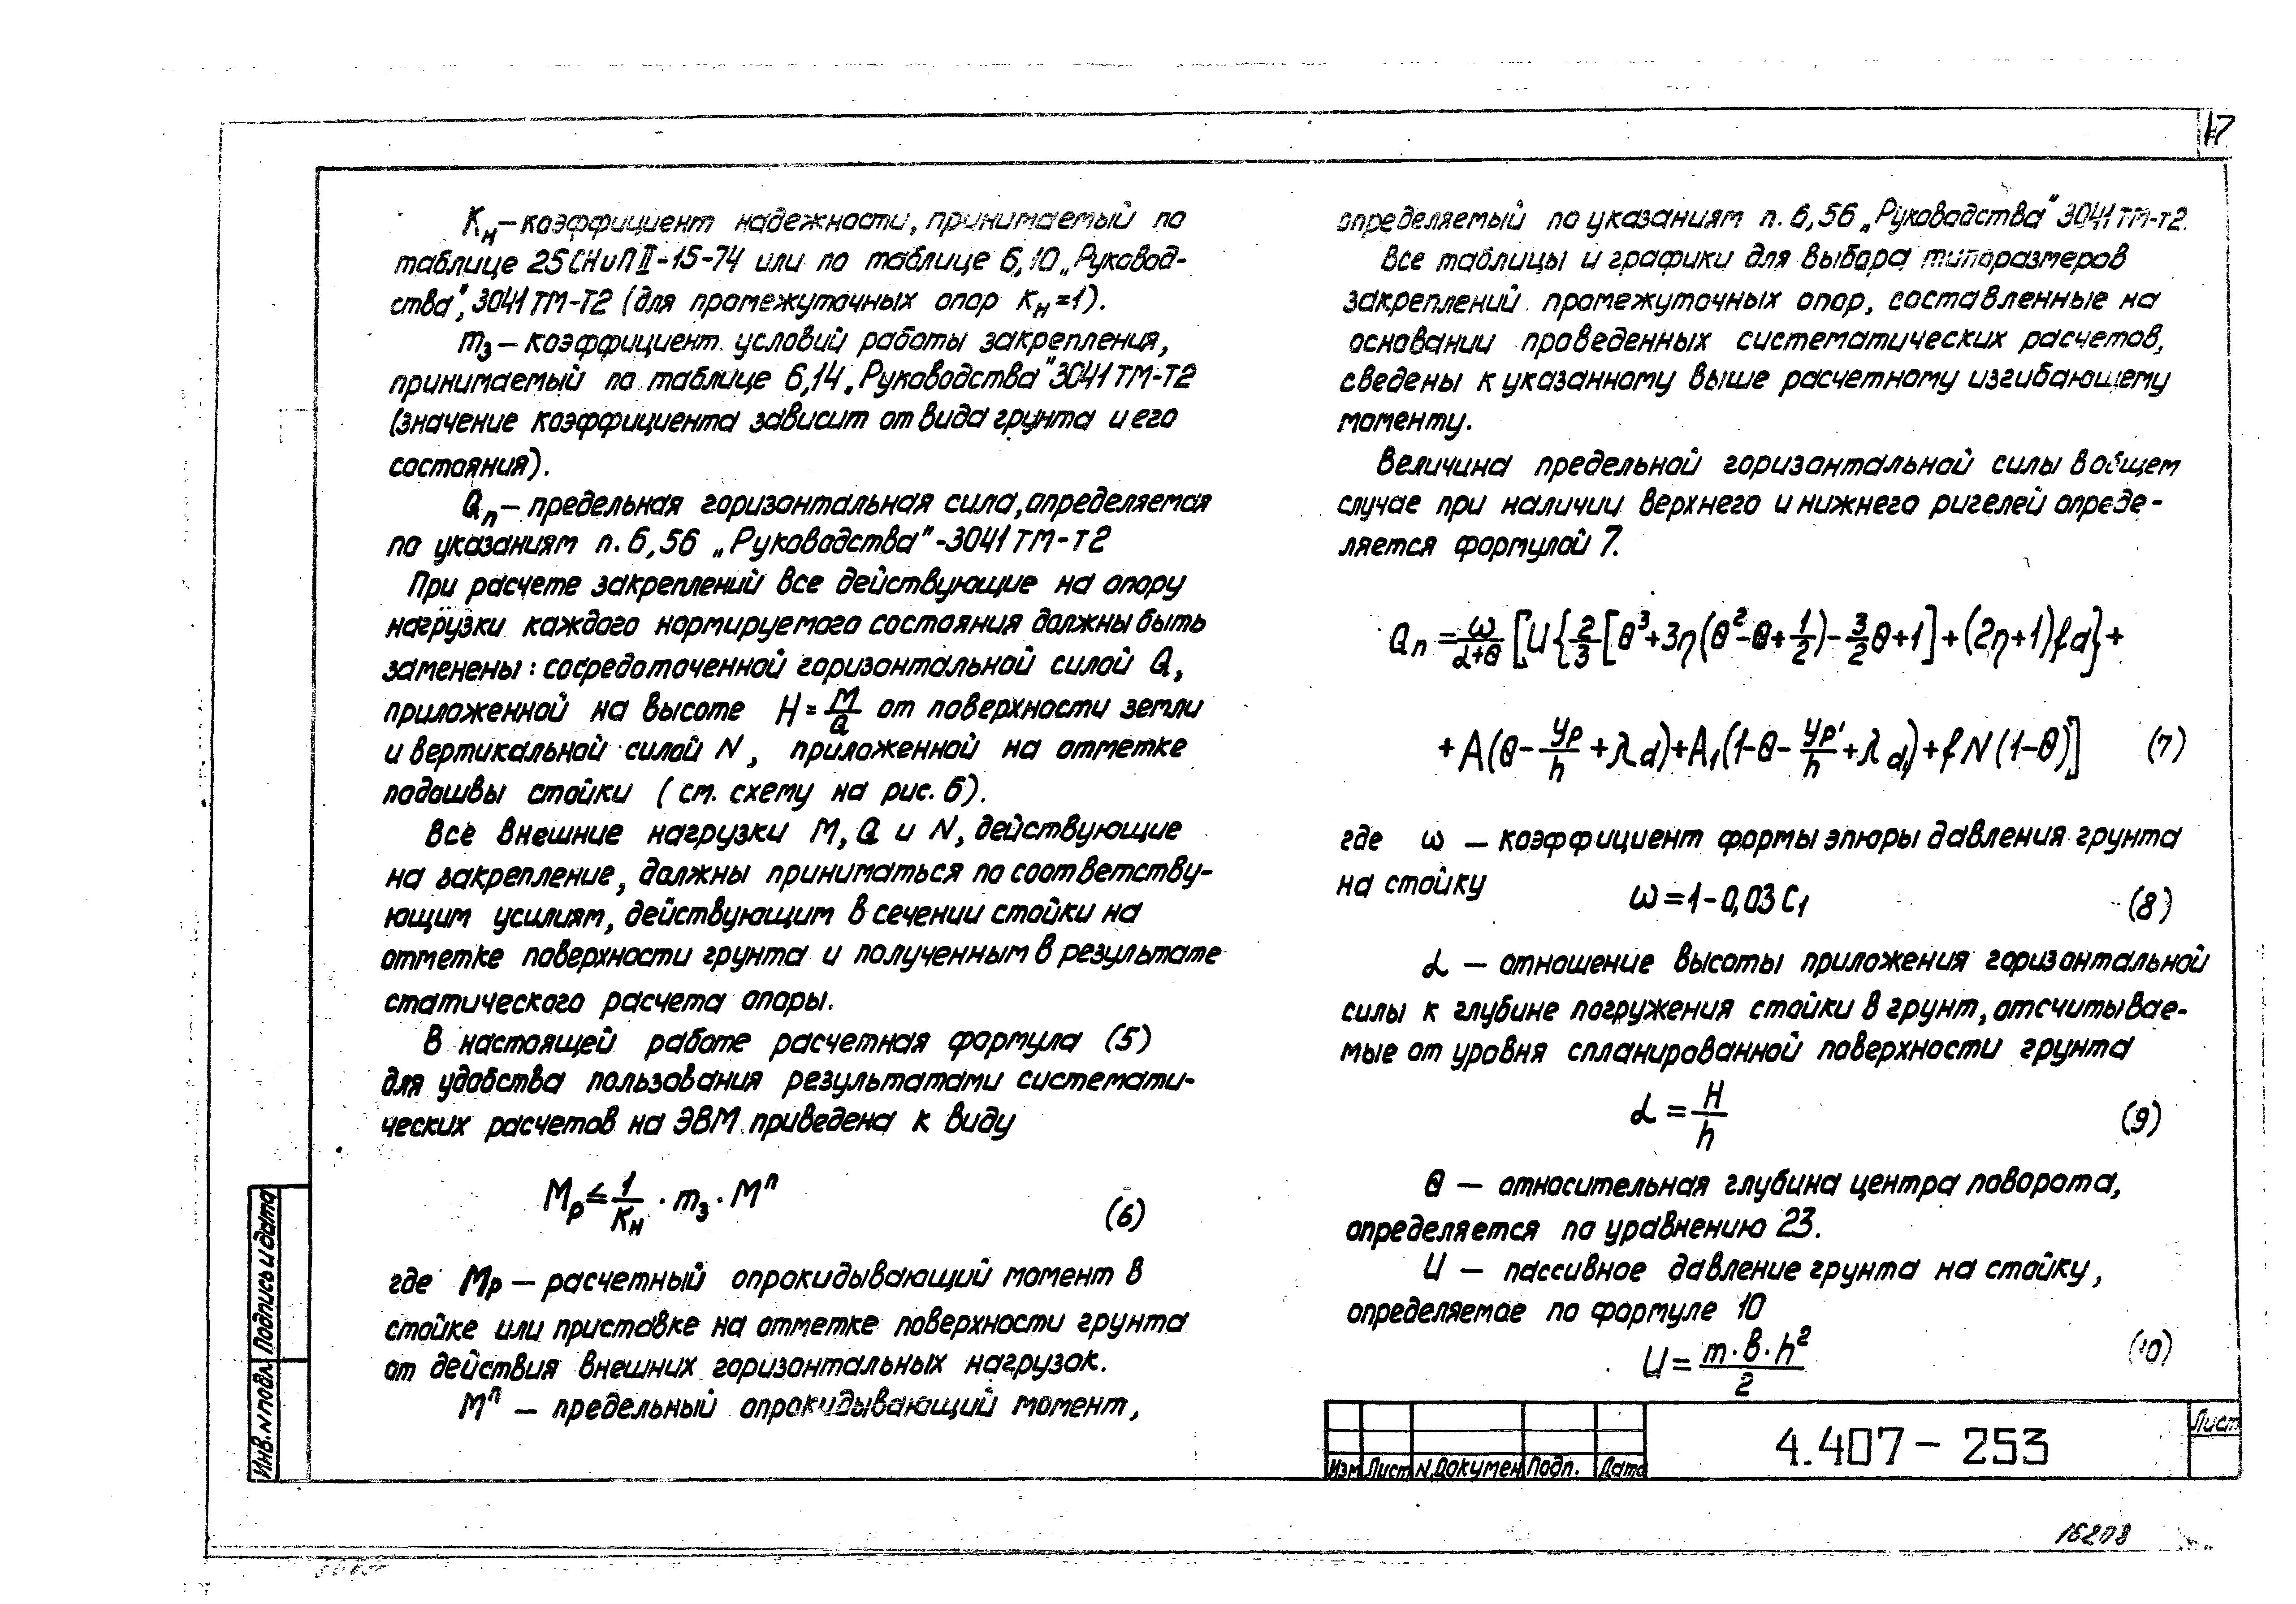 17
Kн – коэффициент надежности, принимаемый по
таблице 25 СНиП II-15-74 или по таблице 6,10 „Руковод-
ства", 3041 ТМ-Т2 (для промежуточных опор Kн=1).
mз – коэффициент условий работы закрепления,
принимаемый по таблице 6,14 „Руководства" 3041 ТМ-Т2
(значение коэффициента зависит от вида грунта и его
состояния).
Qп – предельная горизонтальная сила, определяемая
по указаниям п. 6,56 „Руководства" -3041 ТМ-Т2
При расчете закреплений все действующие на опору
нагрузки каждого нормируемого состояния должны быть
заменены: сосредоточенной горизонтальной силой Q,
приложенной на высоте H = M/Q от поверхности земли
и вертикальной силой N, приложенной на отметке
подошвы стойки (см. схему на рис. 6).
Все внешние нагрузки M, Q и N, действующие
на закрепление, должны приниматься по соответству-
ющим усилиям, действующим в сечении стойки на
отметке поверхности грунта и полученным в результате
статического расчета опоры.
В настоящей работе расчетная формула (5)
для удобства пользования результатами системати-
ческих расчетов на ЭВМ приведена к виду
Mр ≤ 1/Kн · mз · Mⁿ (6)
где Mр – расчетный опрокидывающий момент в
стойке или приставке на отметке поверхности грунта
от действия внешних горизонтальных нагрузок.
Mⁿ – предельный опрокидывающий момент,
определяемый по указаниям п. 6,56 „Руководства" 3041 ТМ-Т2.
Все таблицы и графики для выбора типоразмеров
закреплений промежуточных опор, составленные на
основании проведенных систематических расчетов,
сведены к указанному выше расчетному изгибающему
моменту.
Величина предельной горизонтальной силы в общем
случае при наличии верхнего и нижнего ригелей опреде-
ляется формулой 7.
Qп = ω/(α+θ) [U{2/3[θ³+3η(θ²-θ+1/2)-3/2θ+1]+(2η+1)fd}+
+A(θ-yp/h+λd)+A₁(1-θ-yp'/h+λd₁)+fN(1-θ)] (7)
где ω – коэффициент формы эпюры давления грунта
на стойку
ω = 1-0,03 C₁ (8)
α – отношение высоты приложения горизонтальной
силы к глубине погружения стойки в грунт, отсчитывае-
мые от уровня спланированной поверхности грунта
α = H/h (9)
θ – относительная глубина центра поворота,
определяется по уравнению 23.
U – пассивное давление грунта на стойку,
определяемое по формуле 10
U = m·в·h²/2 (10)
Инв. N подл. Подпись и дата
Изм Лист N Докумен Подп. Дата
4.407 – 253
Лист
16208